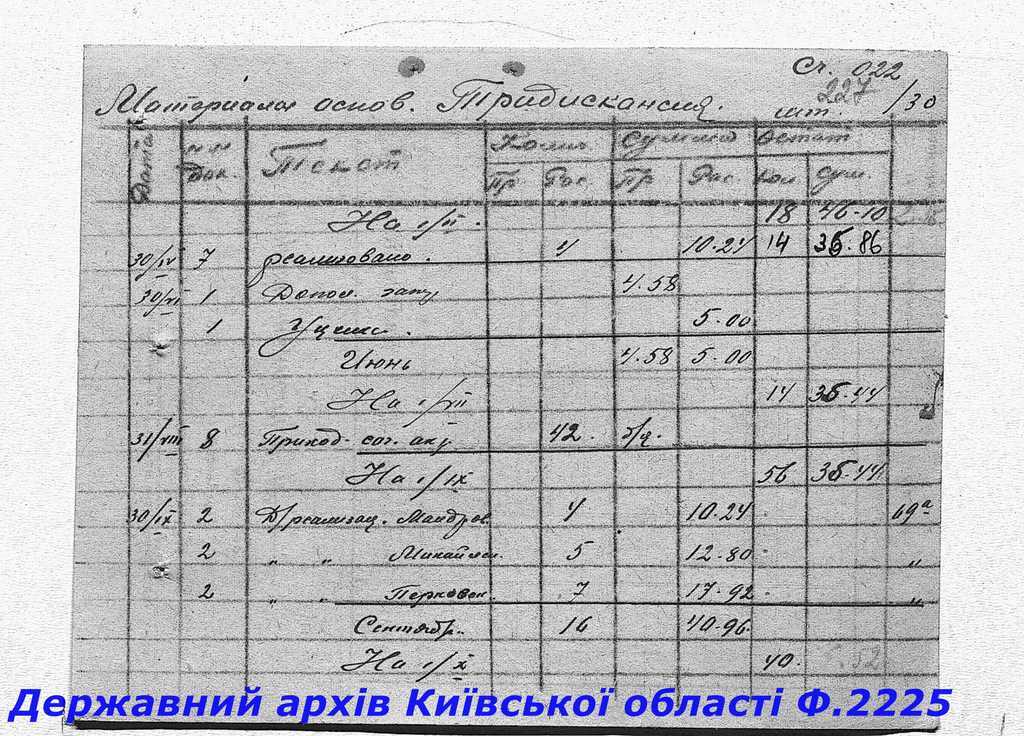 Сч. 022
227
Материалы основ. Тридискансия. шт. /30
Дата NN док. Текст Колич. Сумма Остат
Пр Рас. Пр Рас. кол сум.
На 1/VI. 18 46-10
30/IV 7 реализовано. 4 10.24 14 35.86
30/VI 1 Допол. запу 4.58
1 Уценк. 5.00
Июнь 4.58 5-00
На 1/VII 14 35.44
31/VIII 8 Приход. сог. аку 42. б/ц.
На 1/IX 56 35-44
30/IX 2 Д/реализац. Мандров. 4 10.24 69а
2 " " 5 12.80 "
2 " " 7 17.92 "
Сентябр. 16 40-96
На 1/X 40.
Державний архів Київської області Ф.2225